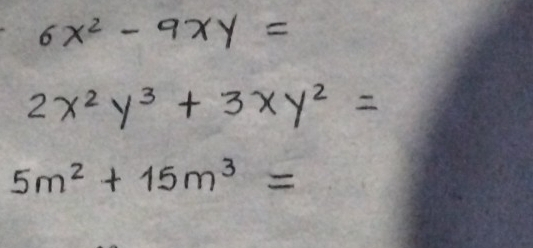 6x² - 9xy =
2x² y³ + 3xy² =
5m² + 15m³ =